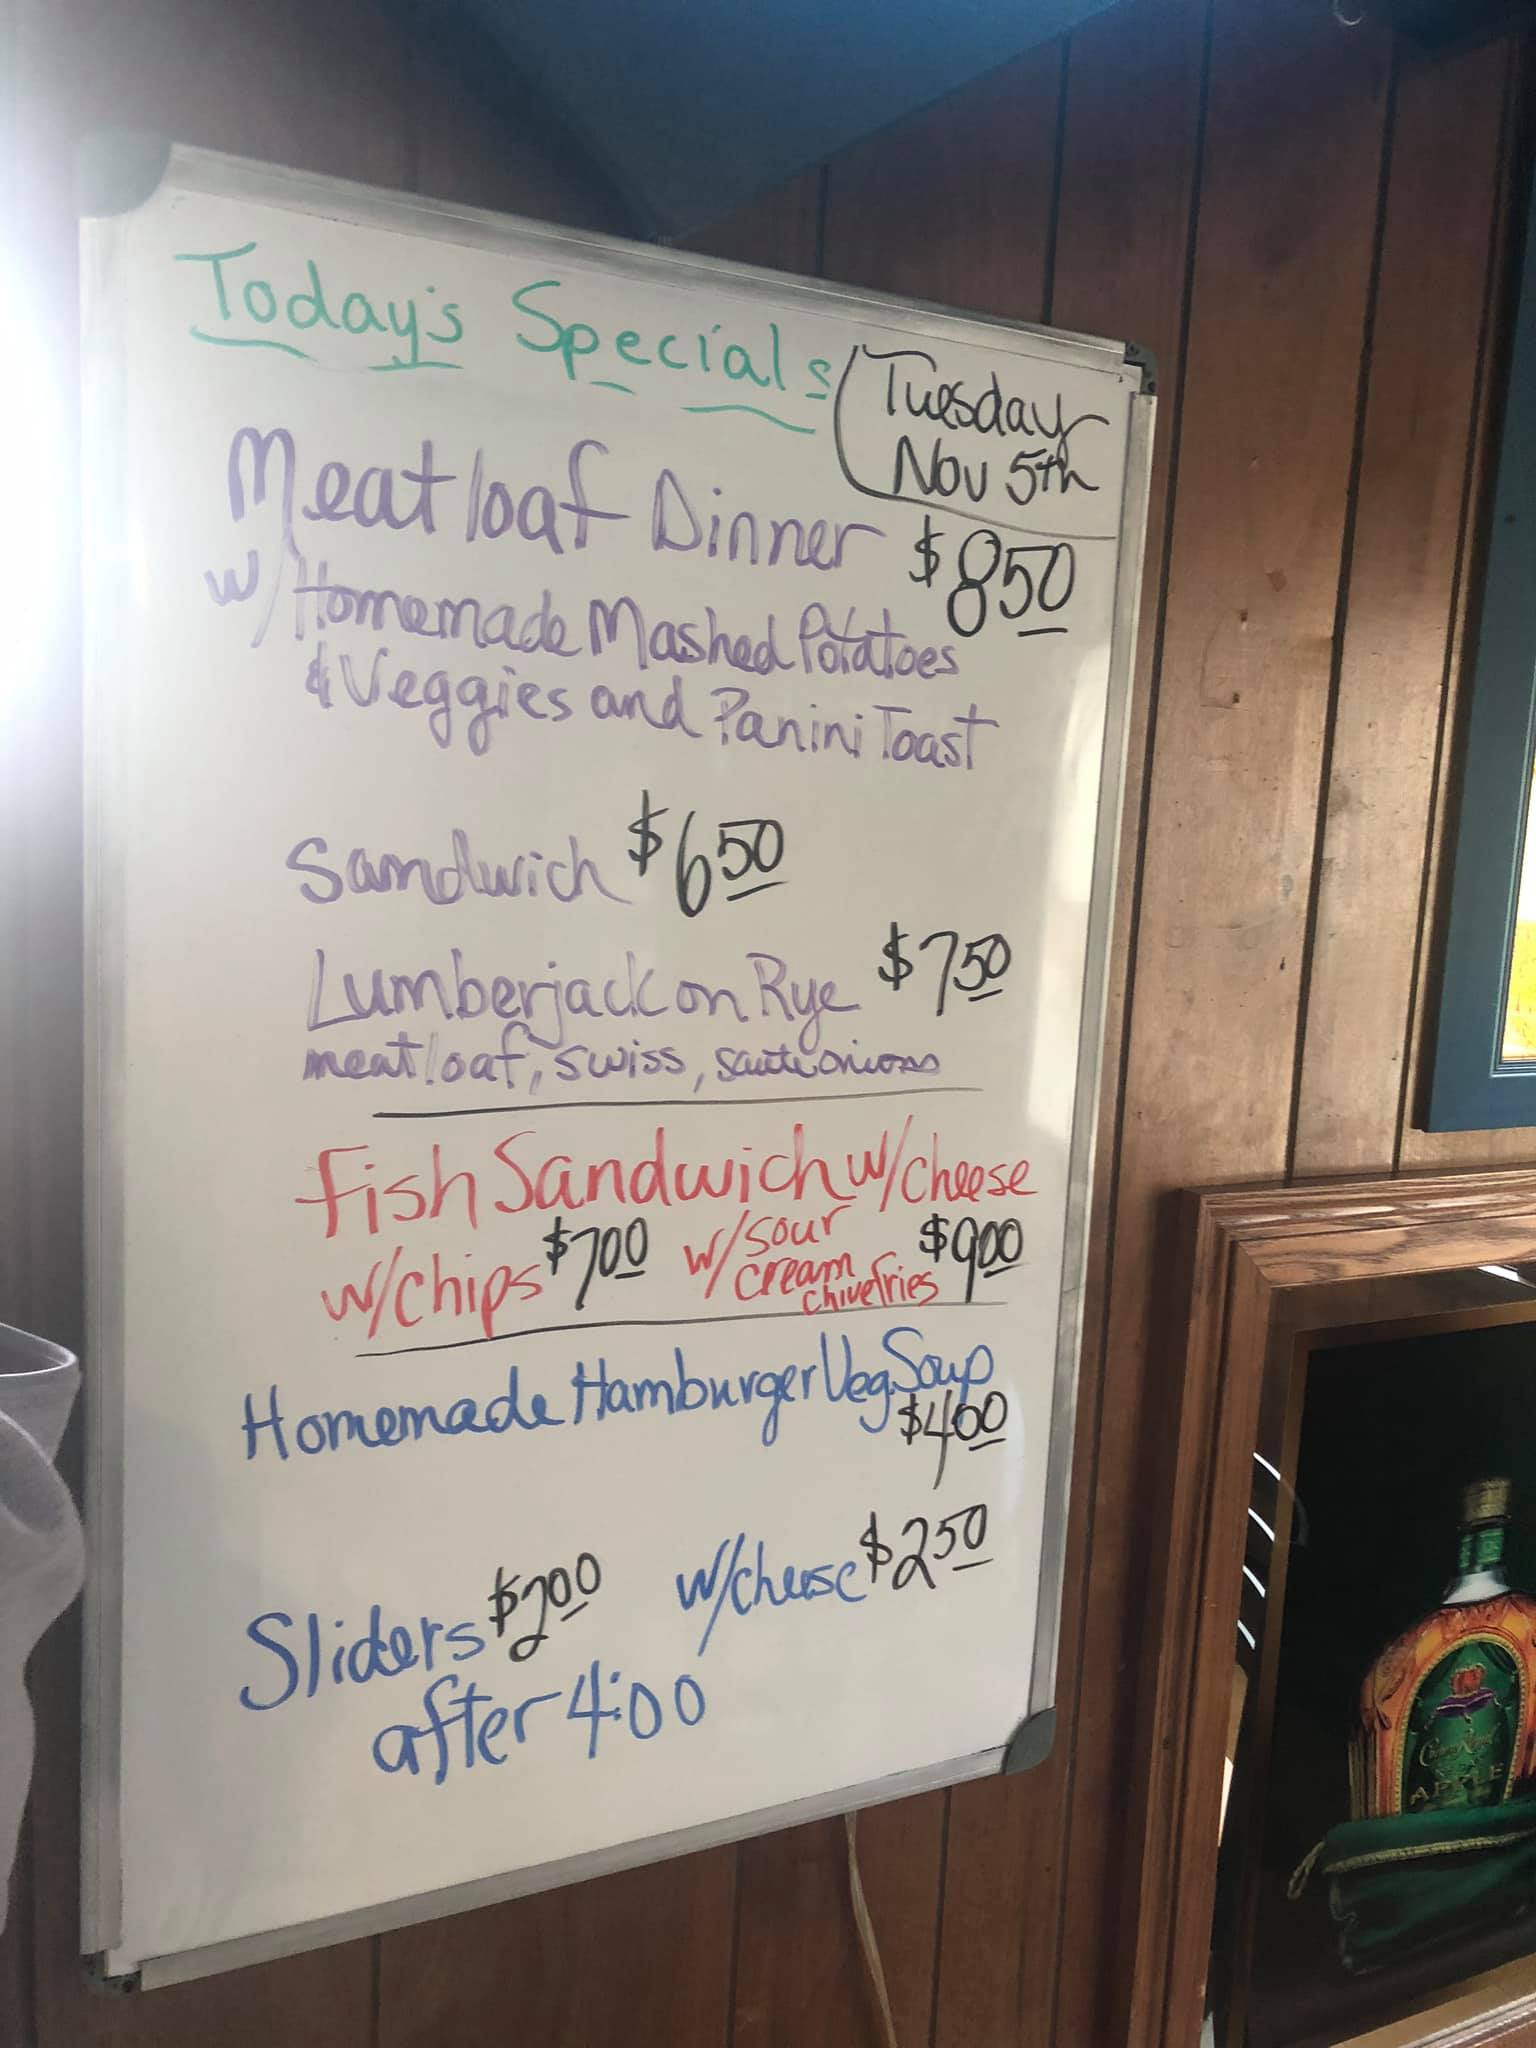 Today's Specials
Tuesday
Nov 5th
Meatloaf Dinner $8.50
w/Homemade Mashed Potatoes
& Veggies and Panini Toast
Sandwich $6.50
Lumberjack on Rye $7.50
meatloaf, swiss, saute onions
Fish Sandwich w/cheese
w/chips $7.00 w/sour cream chive fries $9.00
Homemade Hamburger Veg Soup
$4.00
Sliders $2.00 w/cheese $2.50
after 4:00
Crown Royal
APPLE